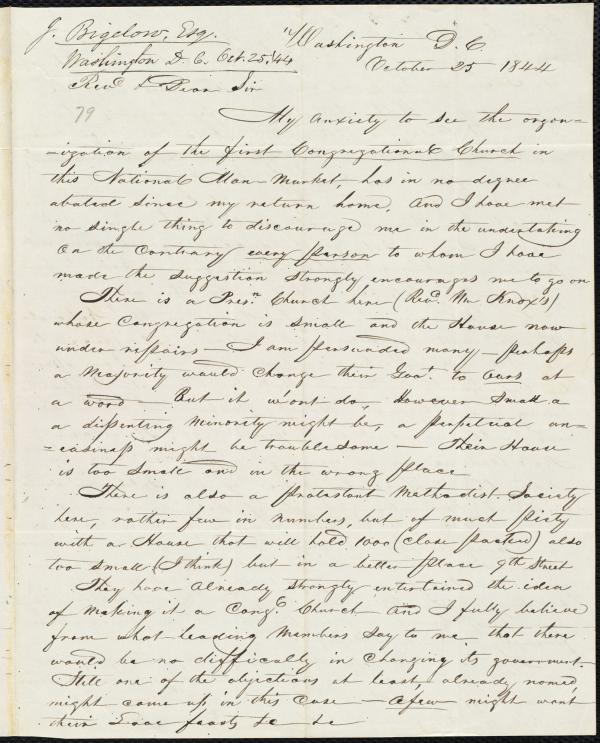 J. Bigelow, Esq.
Washington D. C. Oct. 25. '44
Washington D. C.
October 25 1844
Revd & Dear Sir
79
My anxiety to see the organ-
-ization of the first Congregational Church in
this National Man-Market, has in no degree
abated since my return home. And I have met
no single thing to discourage me in the undertaking
On the Contrary every person to whom I have
made the suggestion strongly encourages me to go on
There is a Presn Church here (Revd. Wm Knox's)
whose Congregation is small and the House now
under repairs - I am persuaded many - perhaps
a Majority would Change their Govt. to Ours at
a word - But it wont do, However small a
a dissenting Minority might be, a perpetual un-
-easiness might be troublesome - Their House
is too small and in the wrong place
There is also a protestant Methodist Society
here, rather few in numbers, but of much piety
with a House that will hold 1000 (close packed) also
too small (I think) but in a better place 9th Street
They have already strongly entertained the idea
of making it a Congl Church and I fully believe
from what leading Members say to me that there
would be no difficulty in changing its government.
Still one of the objections at least, already named,
might come up in this case - a few might want
their Love feasts &c &c